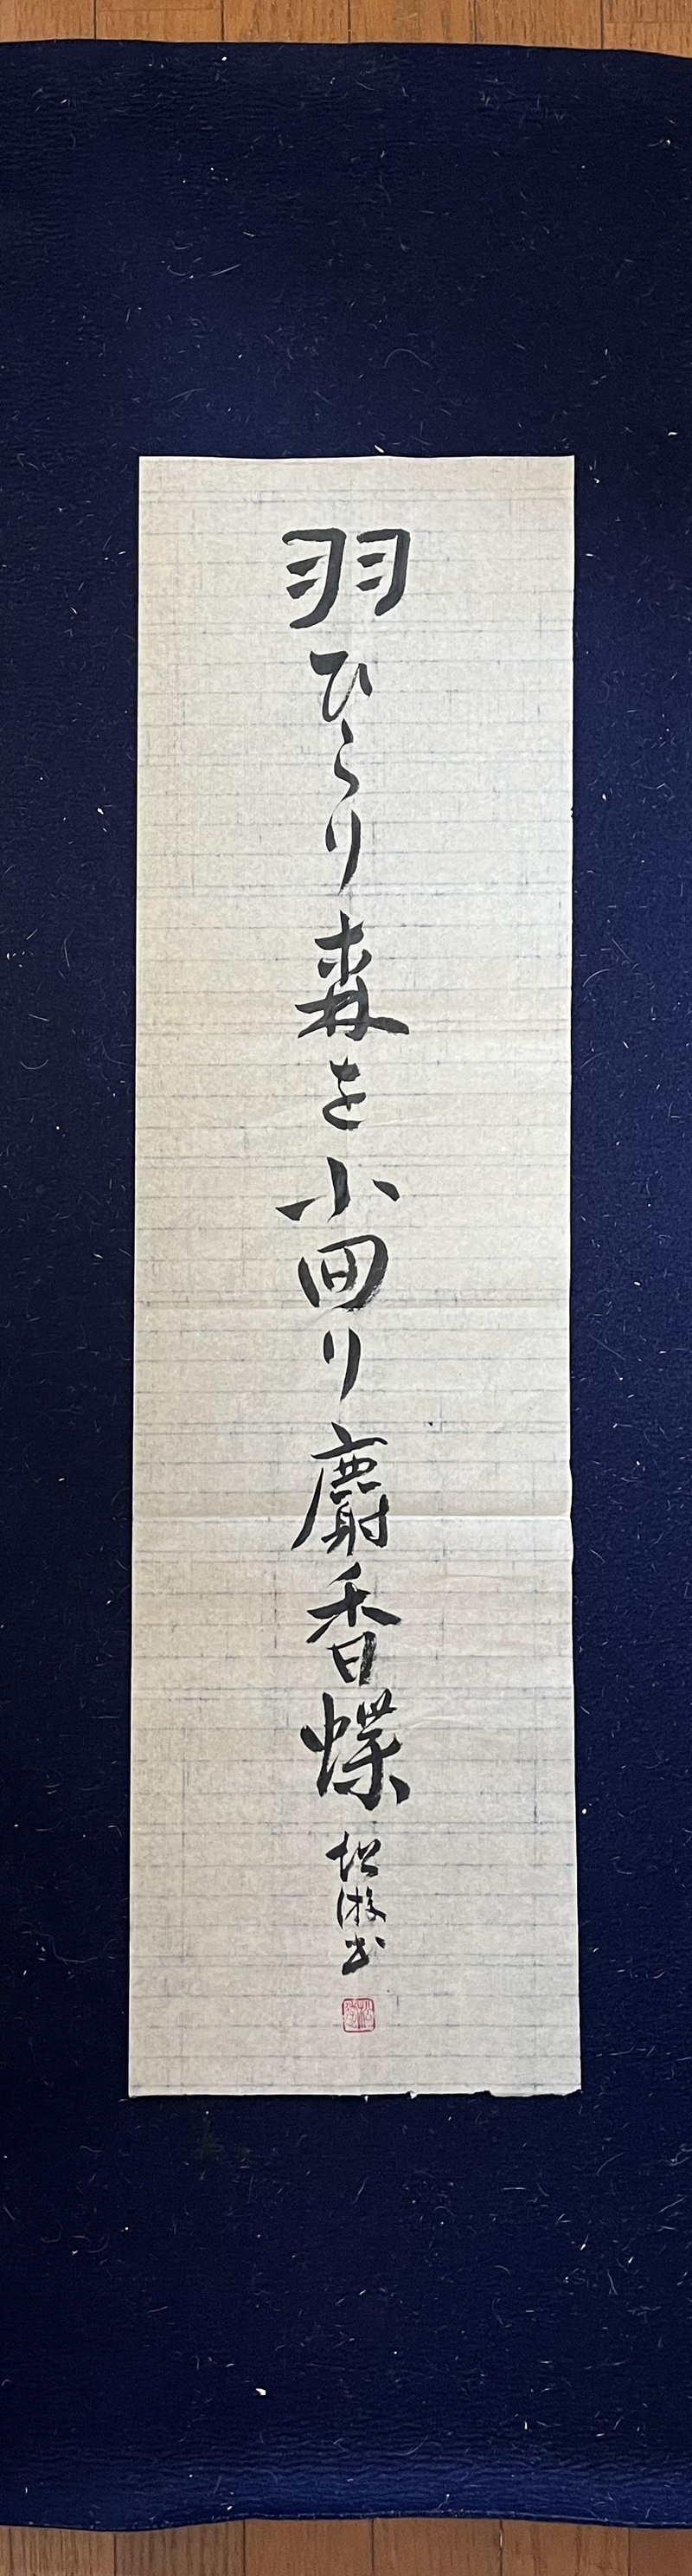 羽ひらり森を小回り麝香蝶